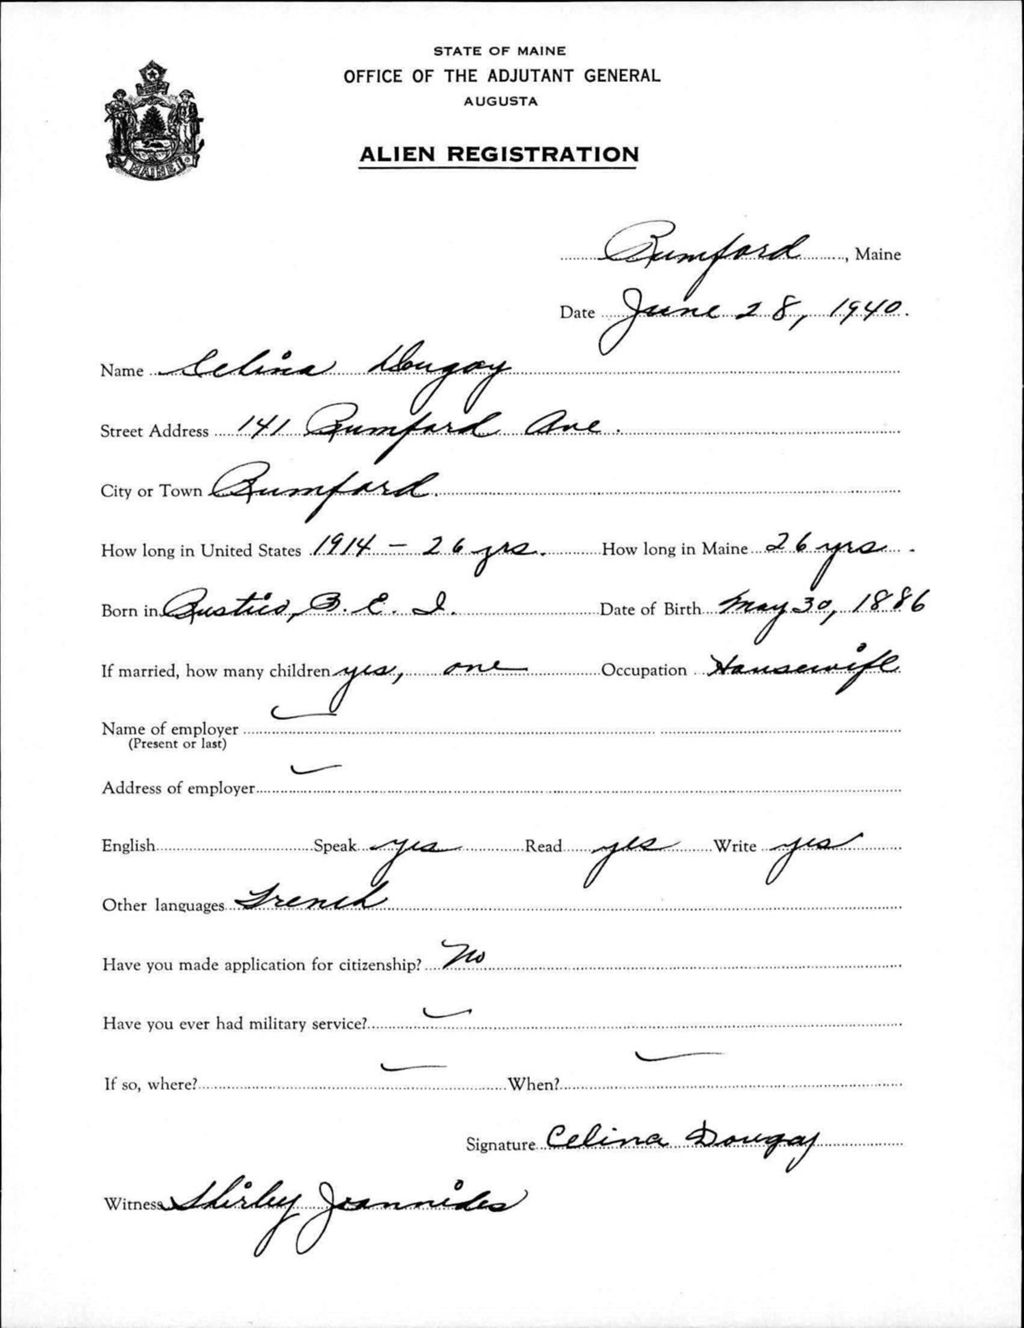 STATE OF MAINE
OFFICE OF THE ADJUTANT GENERAL
AUGUSTA
ALIEN REGISTRATION
MAINE
Rumford, Maine
Date June 28, 1940.
Name Celina Dougay
Street Address 141 Rumford Ave.
City or Town Rumford.
How long in United States 1914 - 26 yrs. How long in Maine 26 yrs.
Born in Rustico, P. E. I. Date of Birth May 30, 1886
If married, how many children yes, one Occupation Housewife
Name of employer
(Present or last)
Address of employer
English Speak yes Read yes Write yes
Other languages French
Have you made application for citizenship? No
Have you ever had military service?
If so, where? When?
Signature Celina Dougay
Witness Shirley Joannides